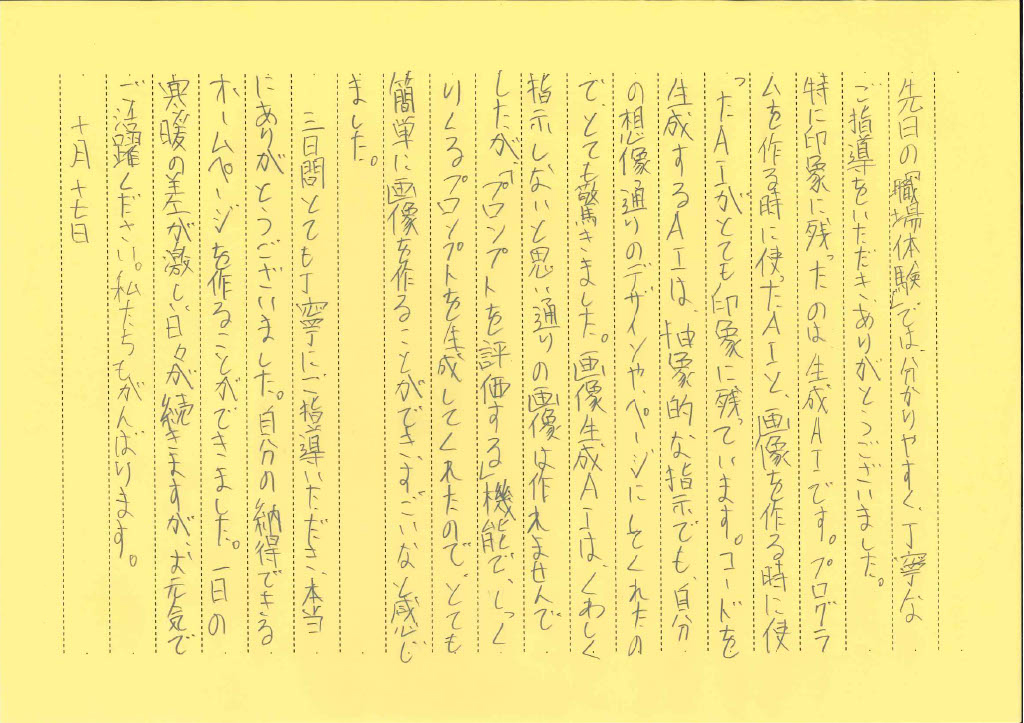 先日の「職場体験」では、分かりやすく、丁寧な
ご指導をいただき、ありがとうございました。
特に印象に残ったのは、生成AIです。プログラ
ムを作る時に使ったAIと、画像を作る時に使
ったAIがとても印象に残っています。コードを
生成するAIは、抽象的な指示でも、自分
の想像通りのデザインや、ページにしてくれたの
で、とても驚きました。画像生成AIは、くわしく
指示しないと思い通りの画像は作れませんで
したが、「プロンプトを評価する」機能で、しっく
りくるプロンプトを生成してくれたので、とても
簡単に画像を作ることができ、すごいなと感じ
ました。
三日間とても丁寧にご指導いただき、本当
にありがとうございました。自分の納得できる
ホームページを作ることができました。一日の
寒暖の差が激しい日々が続きますが、お元気で
ご活躍ください。私たちもがんばります。
十月十七日